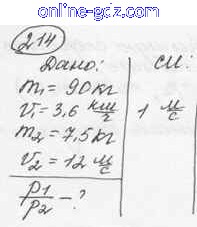 online-gdz.com
214
Дано: СИ:
m₁ = 90 кг
V₁ = 3,6 км/ч 1 м/с
m₂ = 7,5 кг
V₂ = 12 м/с
p₁/p₂ - ?